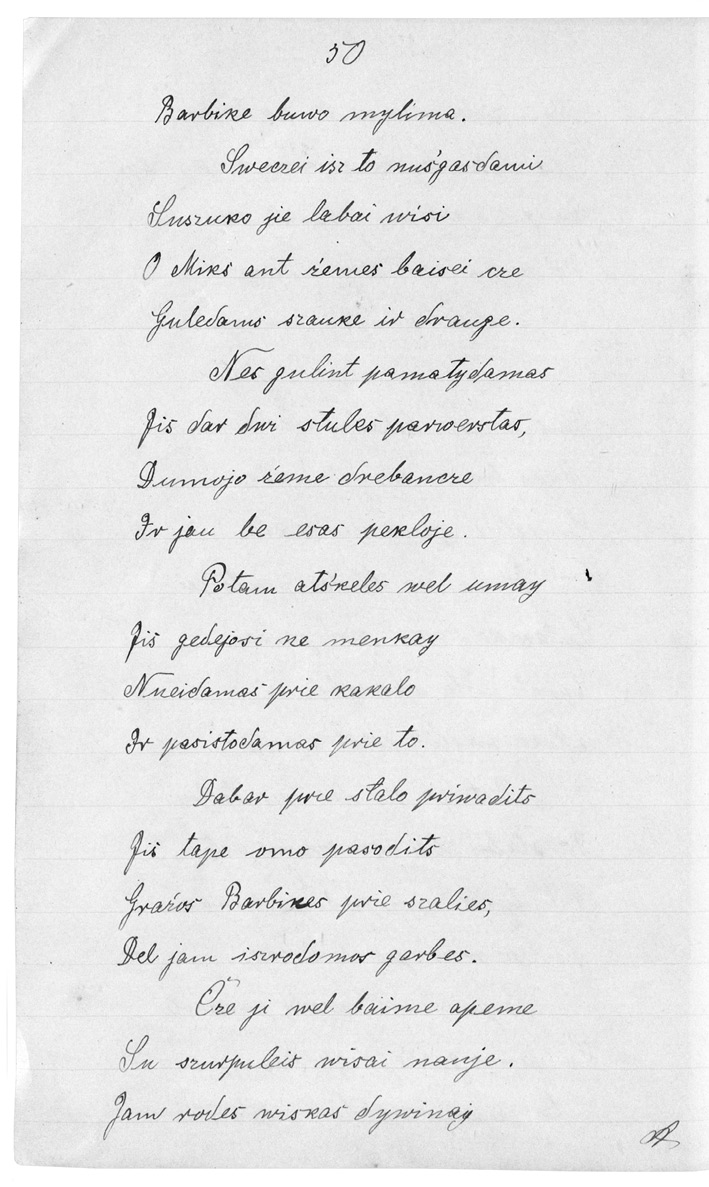 50
Barbike buwo mylima.
Sweczei isz to nusgasdami
Suszuko jie labai wisi
O Miks ant żemes baisei cze
Guledams szauke ir drauge.
Nes gulint pamatydamas
Jis dar dwi stules parwerstas,
Dumojo żeme drebancze
Ir jau be esas pekloje.
Potam atskeles wel umay
Jis gedejosi ne menkay
Nueidamas prie kakalo
Ir pasistodamas prie to.
Dabar prie stalo priwadits
Jis tape omo pasodits
Grażos Barbikes prie szalies,
Del jam iszrodomos garbes.
Cze ji wel baime apeme
Su szurpuleis wisai nauje.
Jam rodes wiskas dywinay